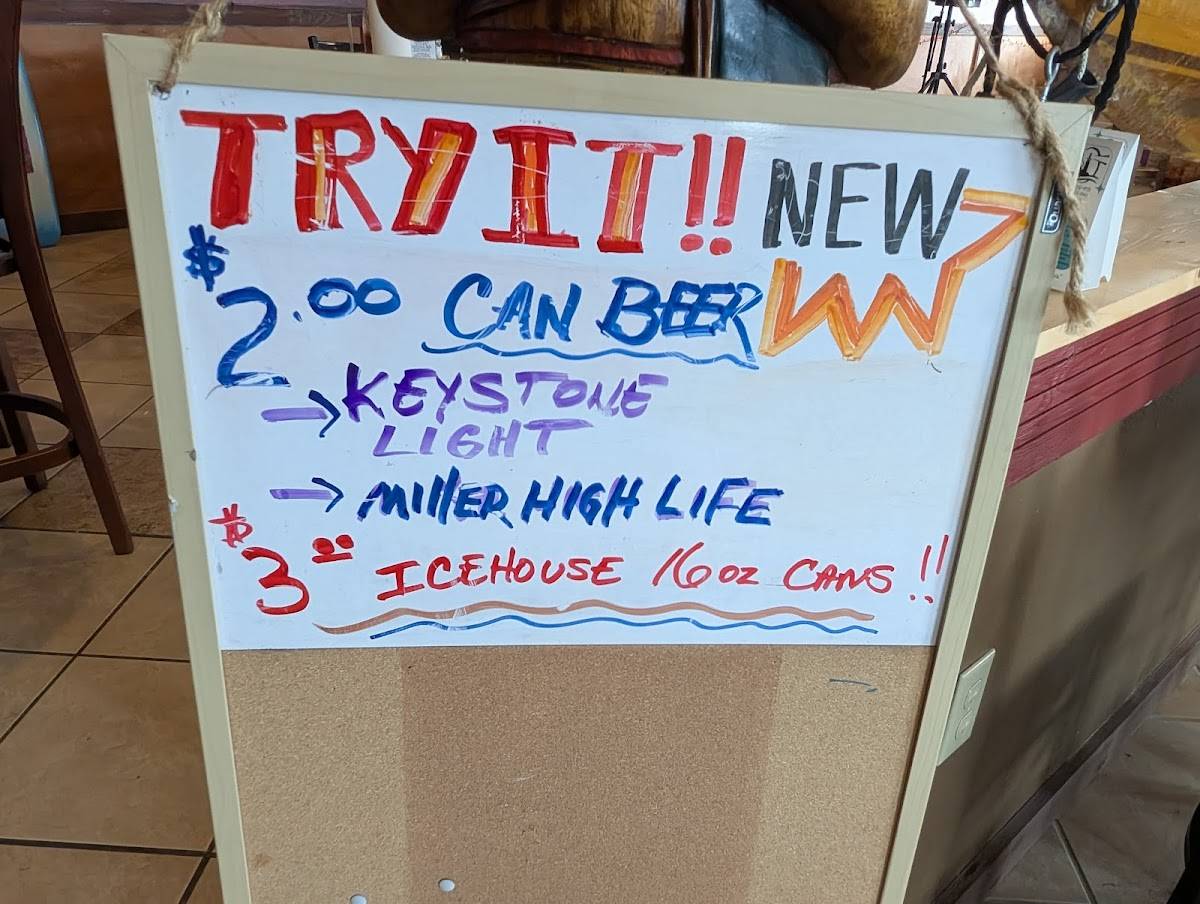 TRY IT!! NEW
$2.00 CAN BEER
→ KEYSTONE
LIGHT
→ MILLER HIGH LIFE
$3.00 ICEHOUSE 16 OZ CANS!!